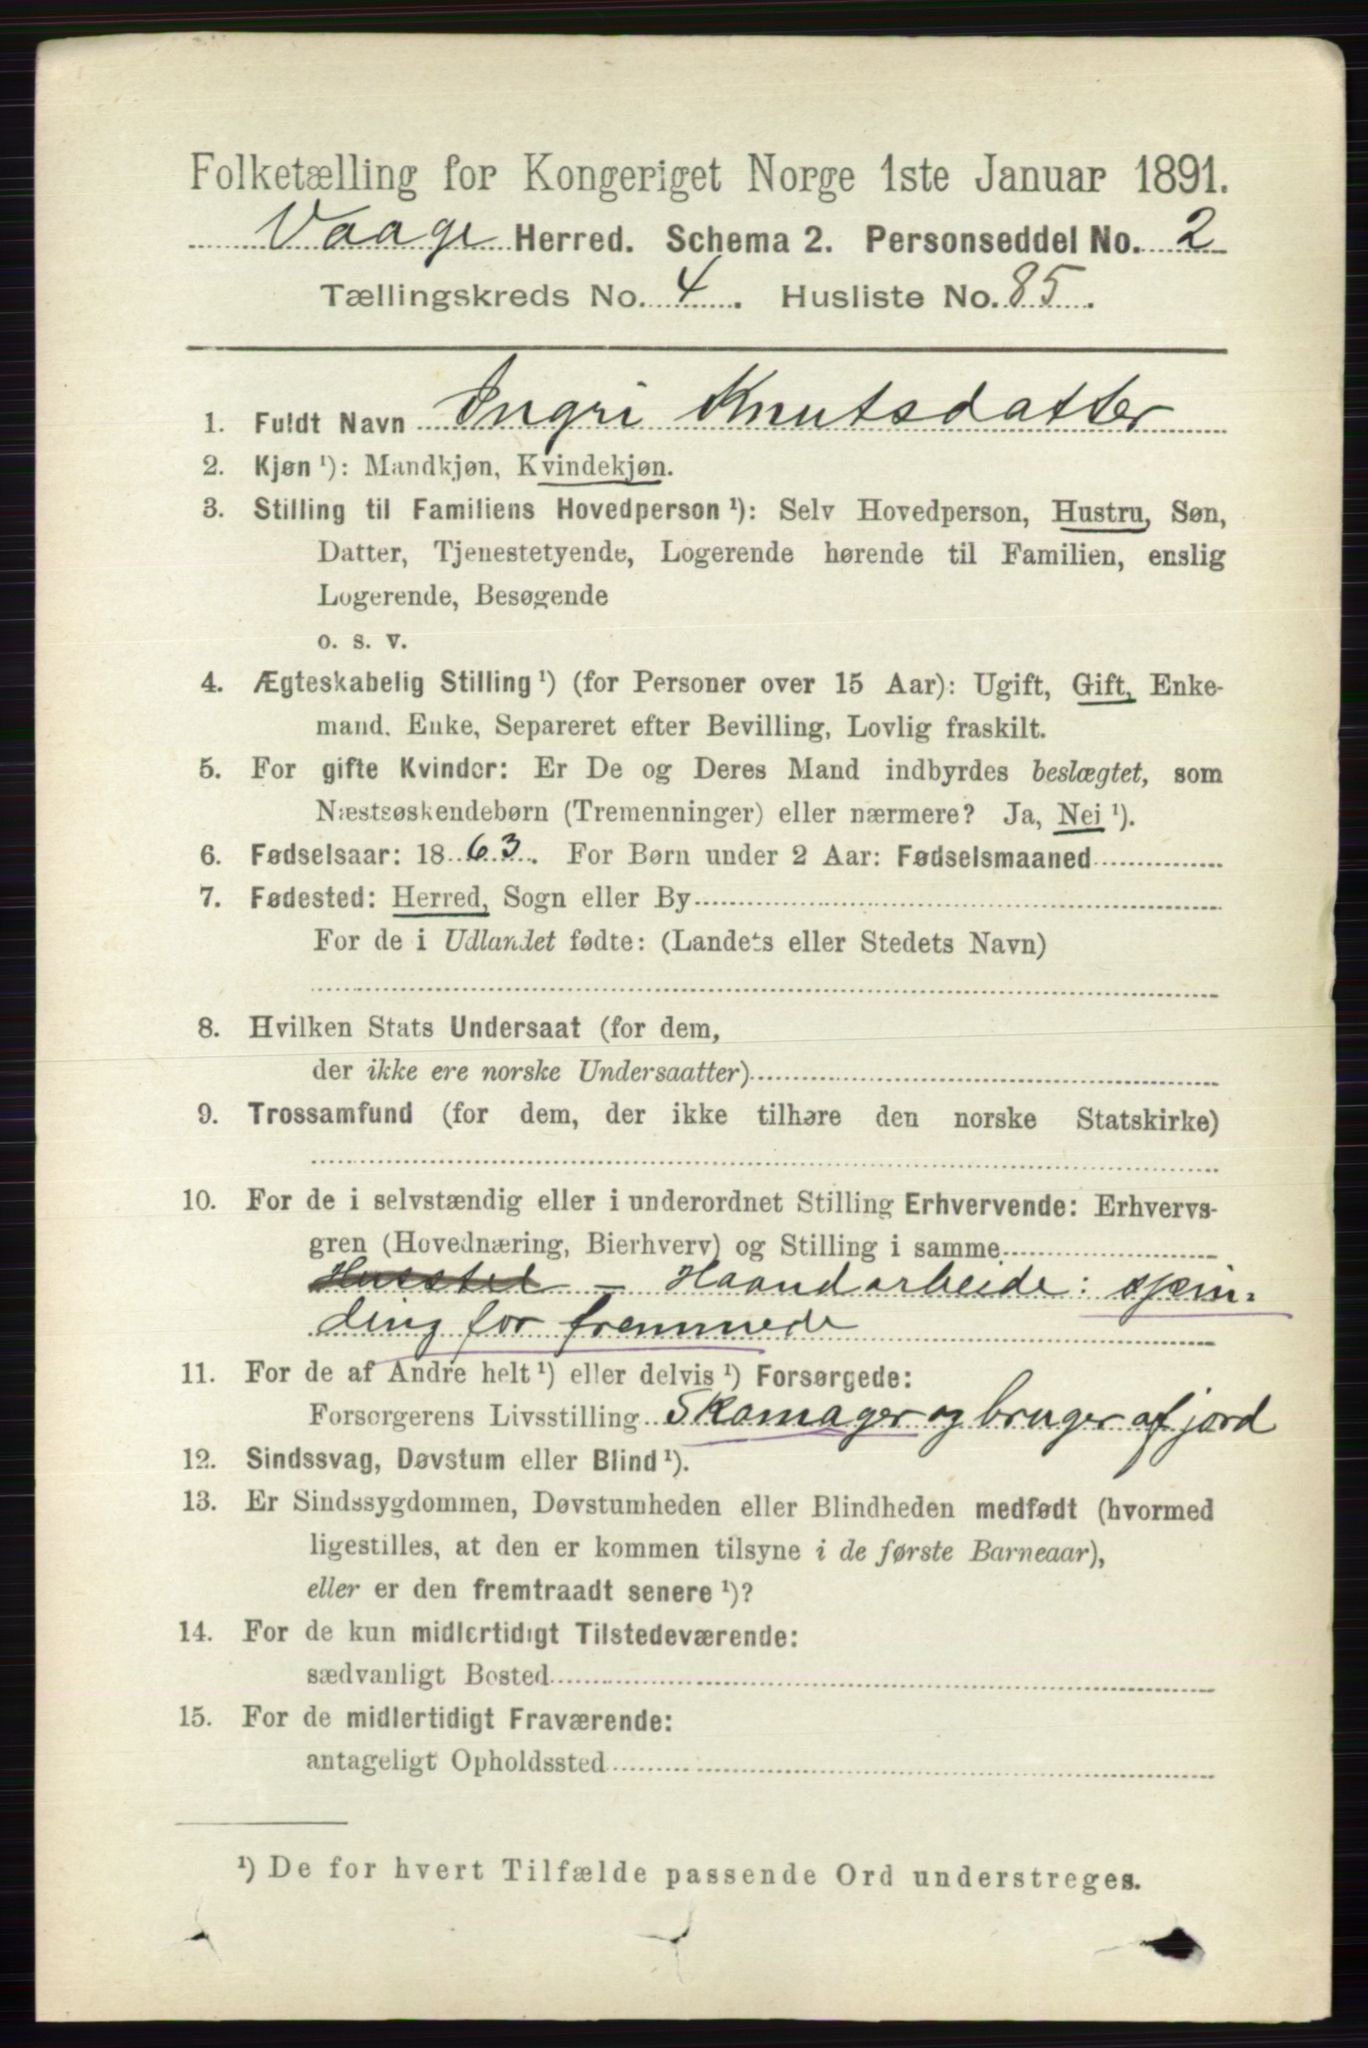 Folketælling for Kongeriget Norge 1ste Januar 1891.
Vaage Herred. Schema 2. Personseddel No. 2
Tællingskreds No. 4. Husliste No. 85.
1. Fuldt Navn Ingri Knutsdatter
2. Kjøn ¹): Mandkjøn, Kvindekjøn.
3. Stilling til Familiens Hovedperson ¹): Selv Hovedperson, Hustru, Søn,
Datter, Tjenestetyende, Logerende hørende til Familien, enslig
Logerende, Besøgende
o. s. v.
4. Ægteskabelig Stilling ¹) (for Personer over 15 Aar): Ugift, Gift, Enke-
mand, Enke, Separeret efter Bevilling, Lovlig fraskilt.
5. For gifte Kvinder: Er De og Deres Mand indbyrdes beslægtet, som
Næstsøskendebørn (Tremenninger) eller nærmere? Ja, Nei ¹).
6. Fødselsaar: 1863. For Børn under 2 Aar: Fødselsmaaned
7. Fødested: Herred, Sogn eller By
For de i Udlandet fødte: (Landets eller Stedets Navn)
8. Hvilken Stats Undersaat (for dem,
der ikke ere norske Undersaatter)
9. Trossamfund (for dem, der ikke tilhøre den norske Statskirke)
10. For de i selvstændig eller i underordnet Stilling Erhvervende: Erhvervs-
gren (Hovednæring, Bierhverv) og Stilling i samme
Husstel – Haandarbeide: spin-
ding for fremmede
11. For de af Andre helt ¹) eller delvis ¹) Forsørgede:
Forsørgerens Livsstilling Skomager og bruger af jord
12. Sindssvag, Døvstum eller Blind ¹).
13. Er Sindssygdommen, Døvstumheden eller Blindheden medfødt (hvormed
ligestilles, at den er kommen tilsyne i de første Barneaar),
eller er den fremtraadt senere ¹)?
14. For de kun midlertidigt Tilstedeværende:
sædvanligt Bosted
15. For de midlertidigt Fraværende:
antageligt Opholdssted
¹) De for hvert Tilfælde passende Ord understreges.